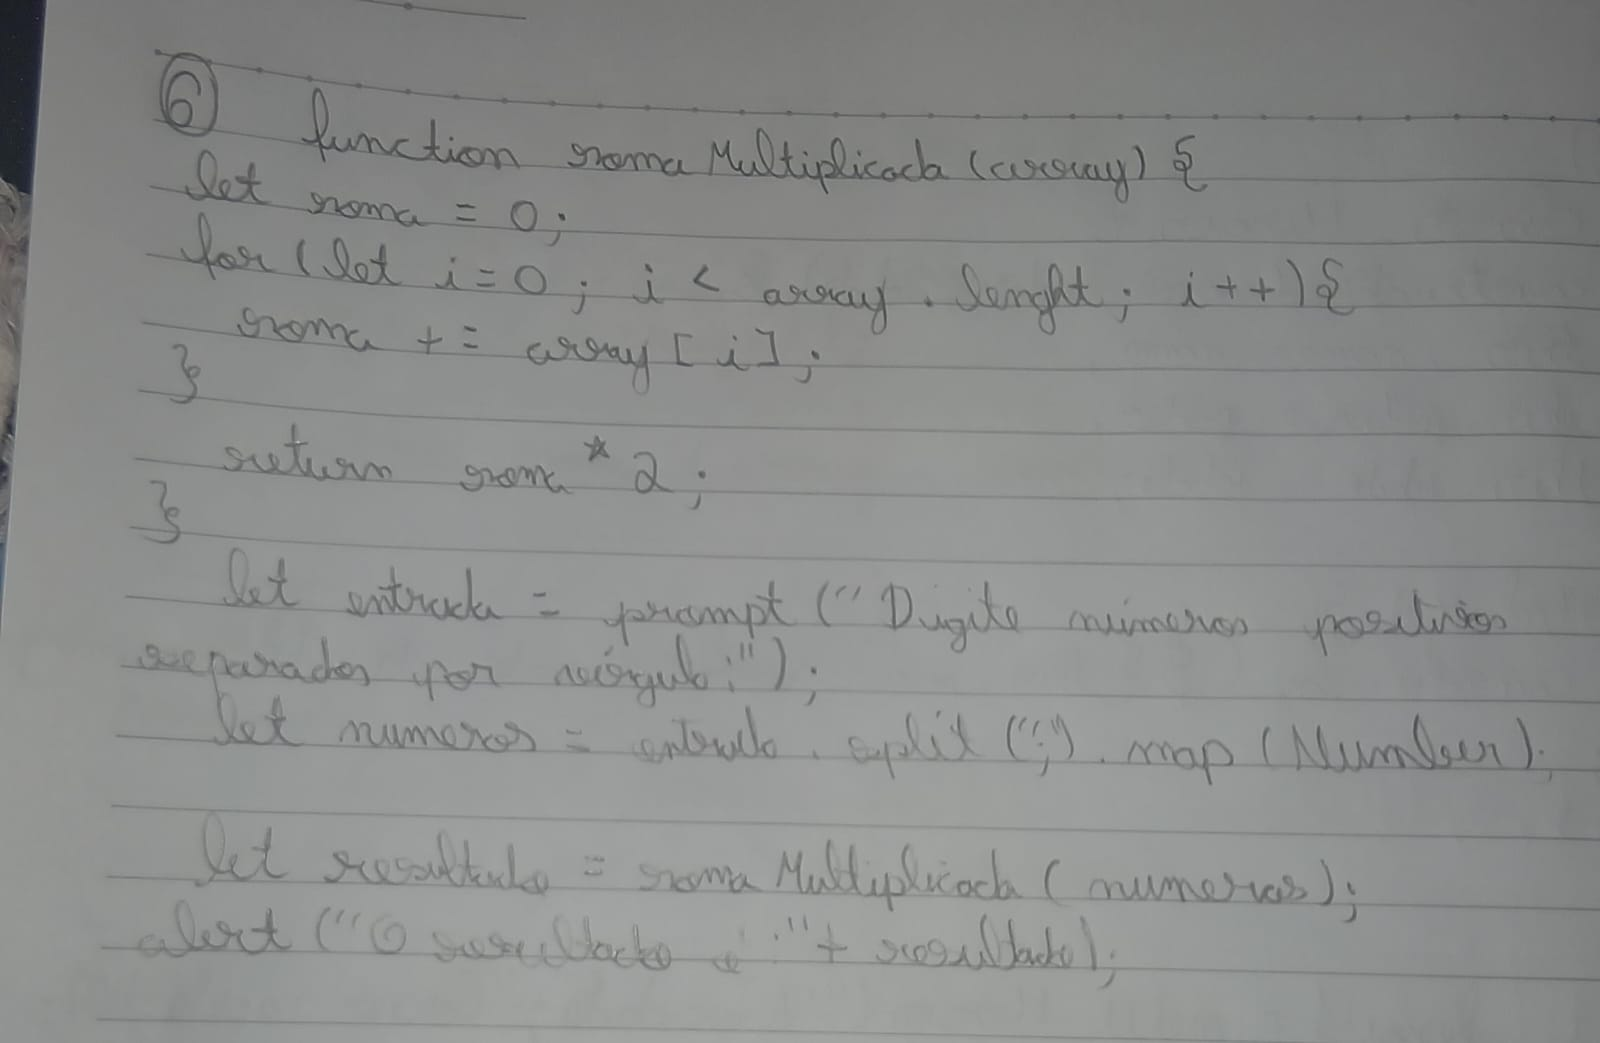 6 function somaMultiplicada (array) {
let soma = 0;
for (let i=0; i < array . lenght; i++){
soma += array [i];
}
return soma * 2;
}
let entrada = prompt ("Digite números positivos
separados por vírgula:");
let numeros = entrada . split (",") . map (Number);
let resultado = somaMultiplicada (numeros);
alert ("O resultado é :" + resultado);